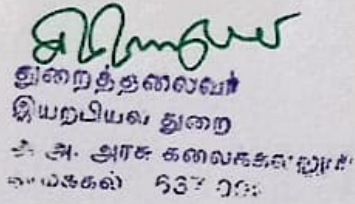 துறைத்தலைவர்
இயற்பியல் துறை
அ. அரசு கலைக்கல்லூரி
நாமக்கல் 637